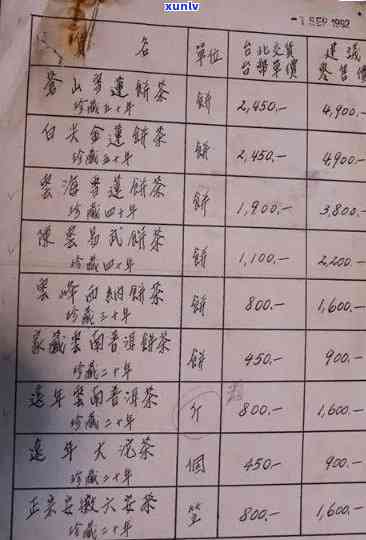 xunlv
.com
-1 SEP 1992
名 單位 台北交貨 建議
台幣單價 零售價
雲山雪蓮餅茶 餅 2,450.- 4,900.-
珍藏五十年
白尖金蓮餅茶 餅 2,450.- 4,900.-
珍藏五十年
雲海雪蓮餅茶 餅 1,900.- 3,800.-
珍藏四十年
陳雲易武餅茶 餅 1,100.- 2,200.-
珍藏四十年
雲峰西納餅茶 餅 800.- 1,600.-
珍藏三十年
家藏雲南普洱餅茶 餅 450.- 900.-
珍藏二十年
遠年雲南普洱茶 斤 800.- 1,600.-
珍藏二十年
遠年大沱茶 個 450.- 900.-
珍藏二十年
正宗安徽六安茶 800.- 1,600.-
珍藏二十年